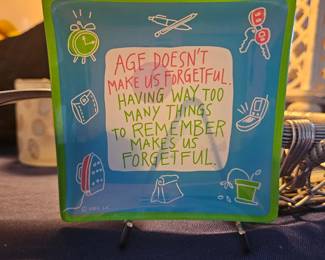 AGE DOESN'T
MAKE US FORGETFUL.
HAVING WAY TOO
MANY THINGS
TO REMEMBER
MAKES US
FORGETFUL.